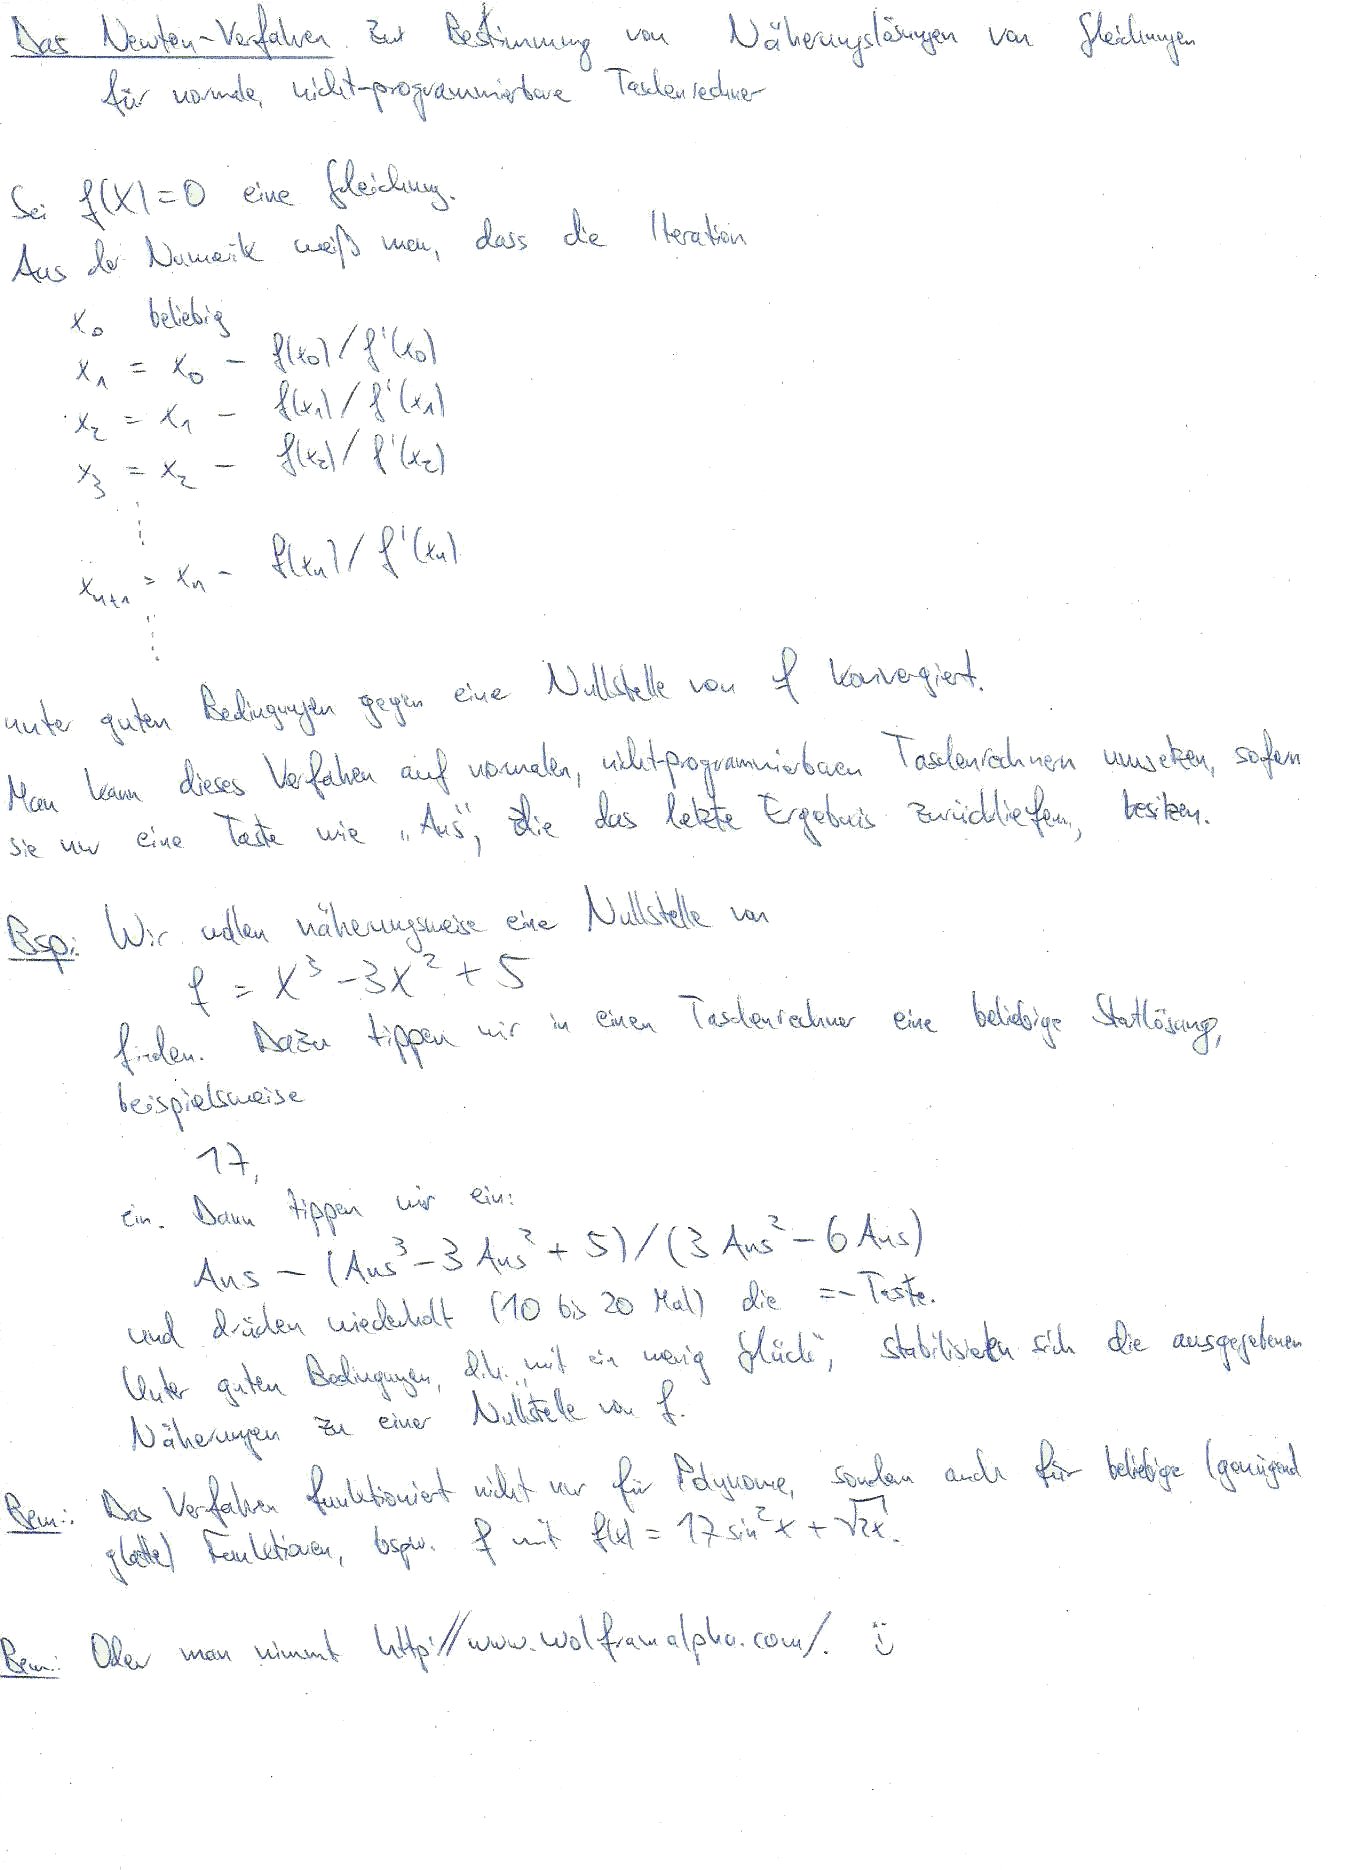 Das Newton-Verfahren zur Bestimmung von Näherungslösungen von Gleichungen
für normale, nicht-programmierbare Taschenrechner
Sei f(X)=0 eine Gleichung.
Aus der Numerik weiß man, dass die Iteration
x₀ beliebig
x₁ = x₀ - f(x₀)/f'(x₀)
x₂ = x₁ - f(x₁)/f'(x₁)
x₃ = x₂ - f(x₂)/f'(x₂)
⋮
xₙ₊₁ = xₙ - f(xₙ)/f'(xₙ)
⋮
unter guten Bedingungen gegen eine Nullstelle von f konvergiert.
Man kann dieses Verfahren auf normalen, nicht-programmierbaren Taschenrechnern umsetzen, sofern
sie nur eine Taste wie „Ans“, die das letzte Ergebnis zurückliefern, besitzen.
Bsp.: Wir wollen näherungsweise eine Nullstelle von
f = X³ - 3X² + 5
finden. Dazu tippen wir in einen Taschenrechner eine beliebige Startlösung,
beispielsweise
17,
ein. Dann tippen wir ein:
Ans - (Ans³ - 3 Ans² + 5)/(3 Ans² - 6 Ans)
und drücken wiederholt (10 bis 20 Mal) die =-Taste.
Unter guten Bedingungen, d.h. „mit ein wenig Glück“, stabilisieren sich die ausgegebenen
Näherungen zu einer Nullstelle von f.
Bem.: Das Verfahren funktioniert nicht nur für Polynome, sondern auch für beliebige (genügend
glatte) Funktionen, bspw. f mit f(x) = 17 sin² x + √2x.
Bem.: Oder man nimmt http://www.wolframalpha.com/. ☺